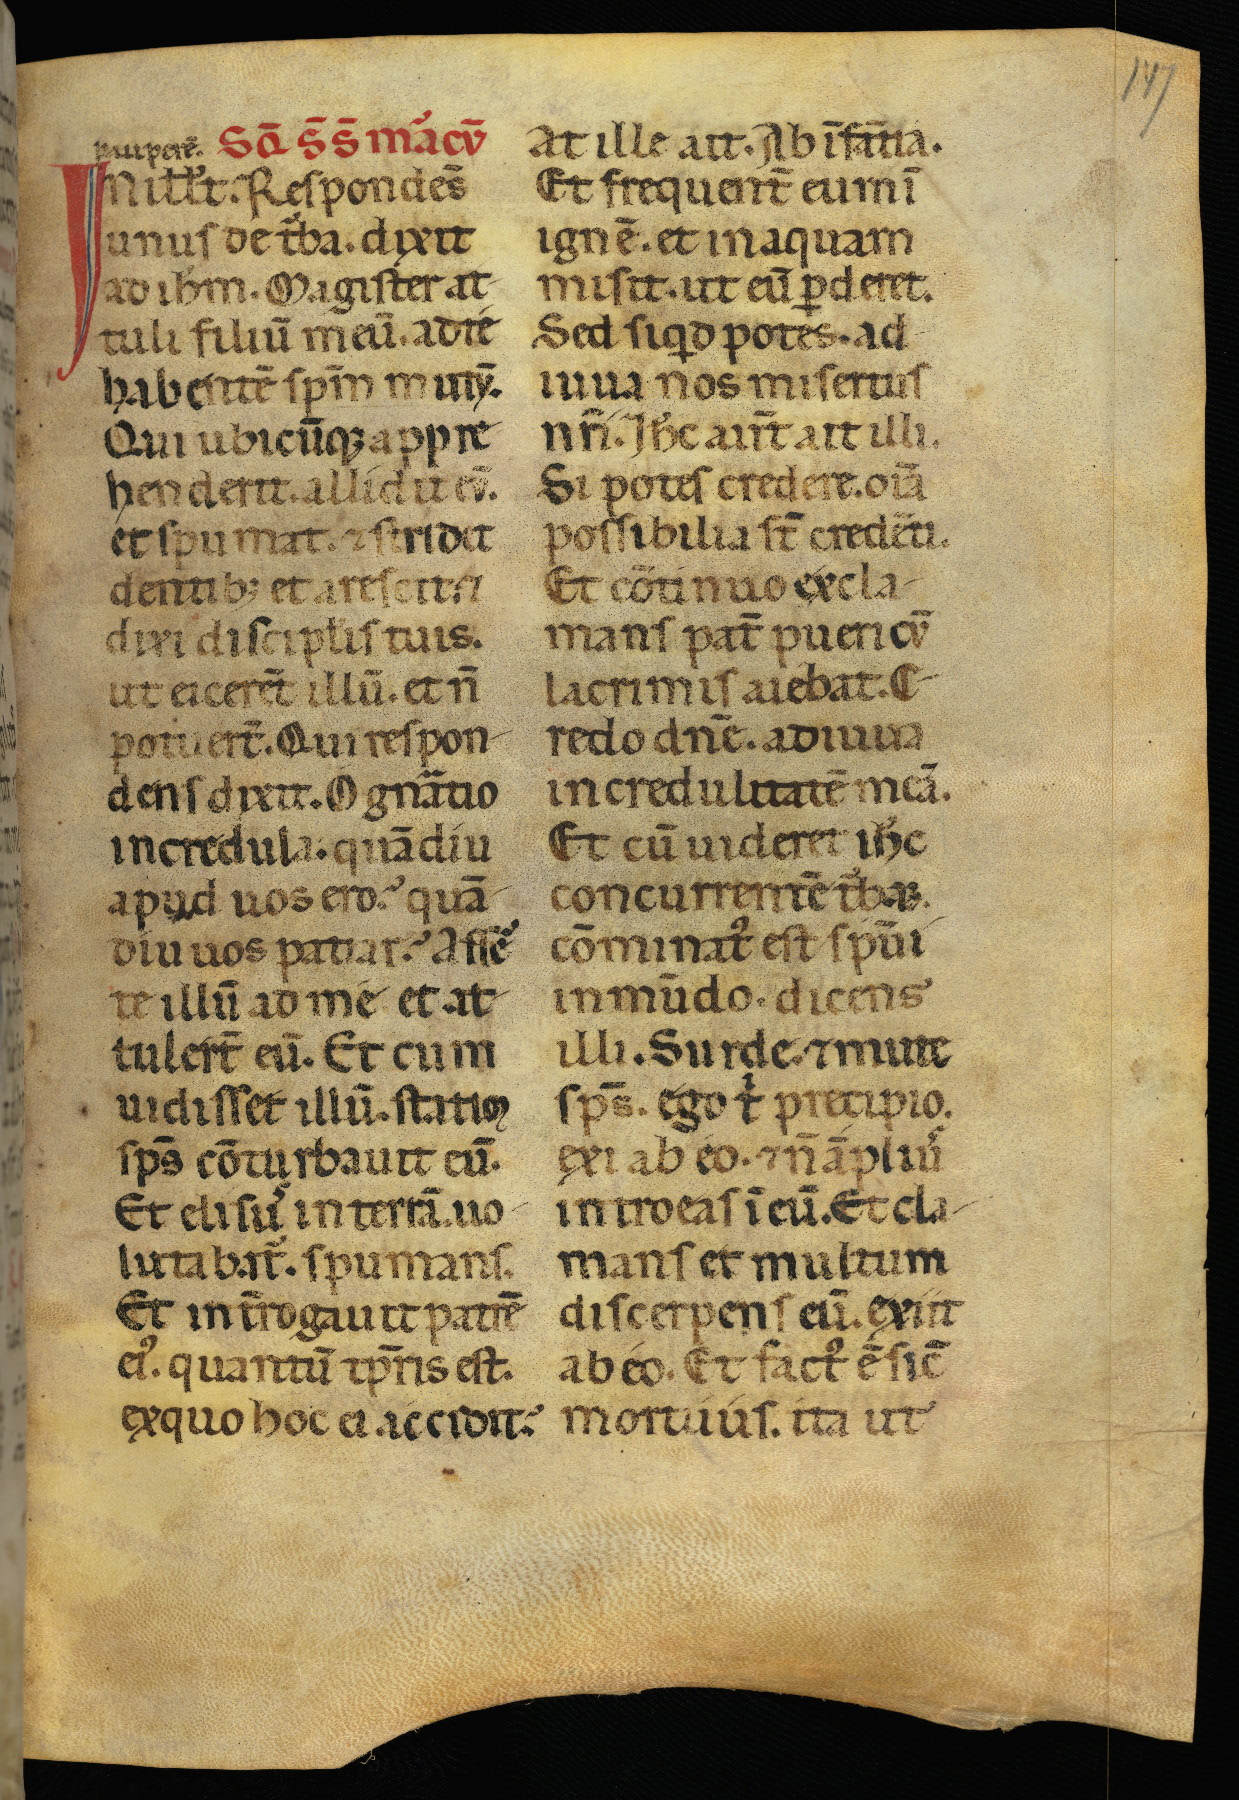 147
pauperē. SꝖ S̄S̄ maͬcū
IN ill̄ t̄. Respondēs
unus de tͬba. dixit
ad ih̄m. Magister at-
tuli filiū meū. ad te
habentē sp̄m mutū.
Qui ubicūqꝫ appre-
henderit. allidit eū.
et spumat. ⁊ stridet
dentibꝫ et arescit. et
dixi discipl̄is tuis.
ut eicerēt illū. et n̄
potuert̄. Qui respon-
dens dixit. O gn̄atio
incredula. quādiu
apud uos ero? quā-
diu uos patiar? Affer-
te illū ad me et at-
tulert̄ eū. Et cum
uidisset illū. statiꝫ
sp̄s cōturbauit eū.
Et elisuꝰ in terrā. uo-
lutabat͛. spumans.
Et int̄rogauit patrē
eiꝰ. quantū tp̄ris est.
ex quo hoc ei accidit?
At ille ait. Ab īfātia.
Et frequent̄ eum ī
ignē. et in aquam
misit. ut eū ꝑderet.
Sed siqͥd potes. ad-
iuua nos misertus
nr̄i. Ih̄c aut̄ ait illi.
Si potes credere. oīa
possibilia st̄ credēti.
Et cōtinuo excla-
mans pat̄ pueri cū
lacrimis aiebat. C-
redo dn̄e. adiuua
incredulitatē meā.
Et cū uideret ih̄c
concurrentē tͬbaꝫ.
cōminatꝰ est sp̄ui
inmūdo. dicens
illi. Surde. ⁊ mute
sp̄s. ego tͥ precipio.
exi ab eo. ⁊ n̄ āpliuꝰ
introeas ī eū. Et cla-
mans et multum
discerpens eū. exiit
ab eo. Et factꝰ ē sic̄
mortuus. ita ut